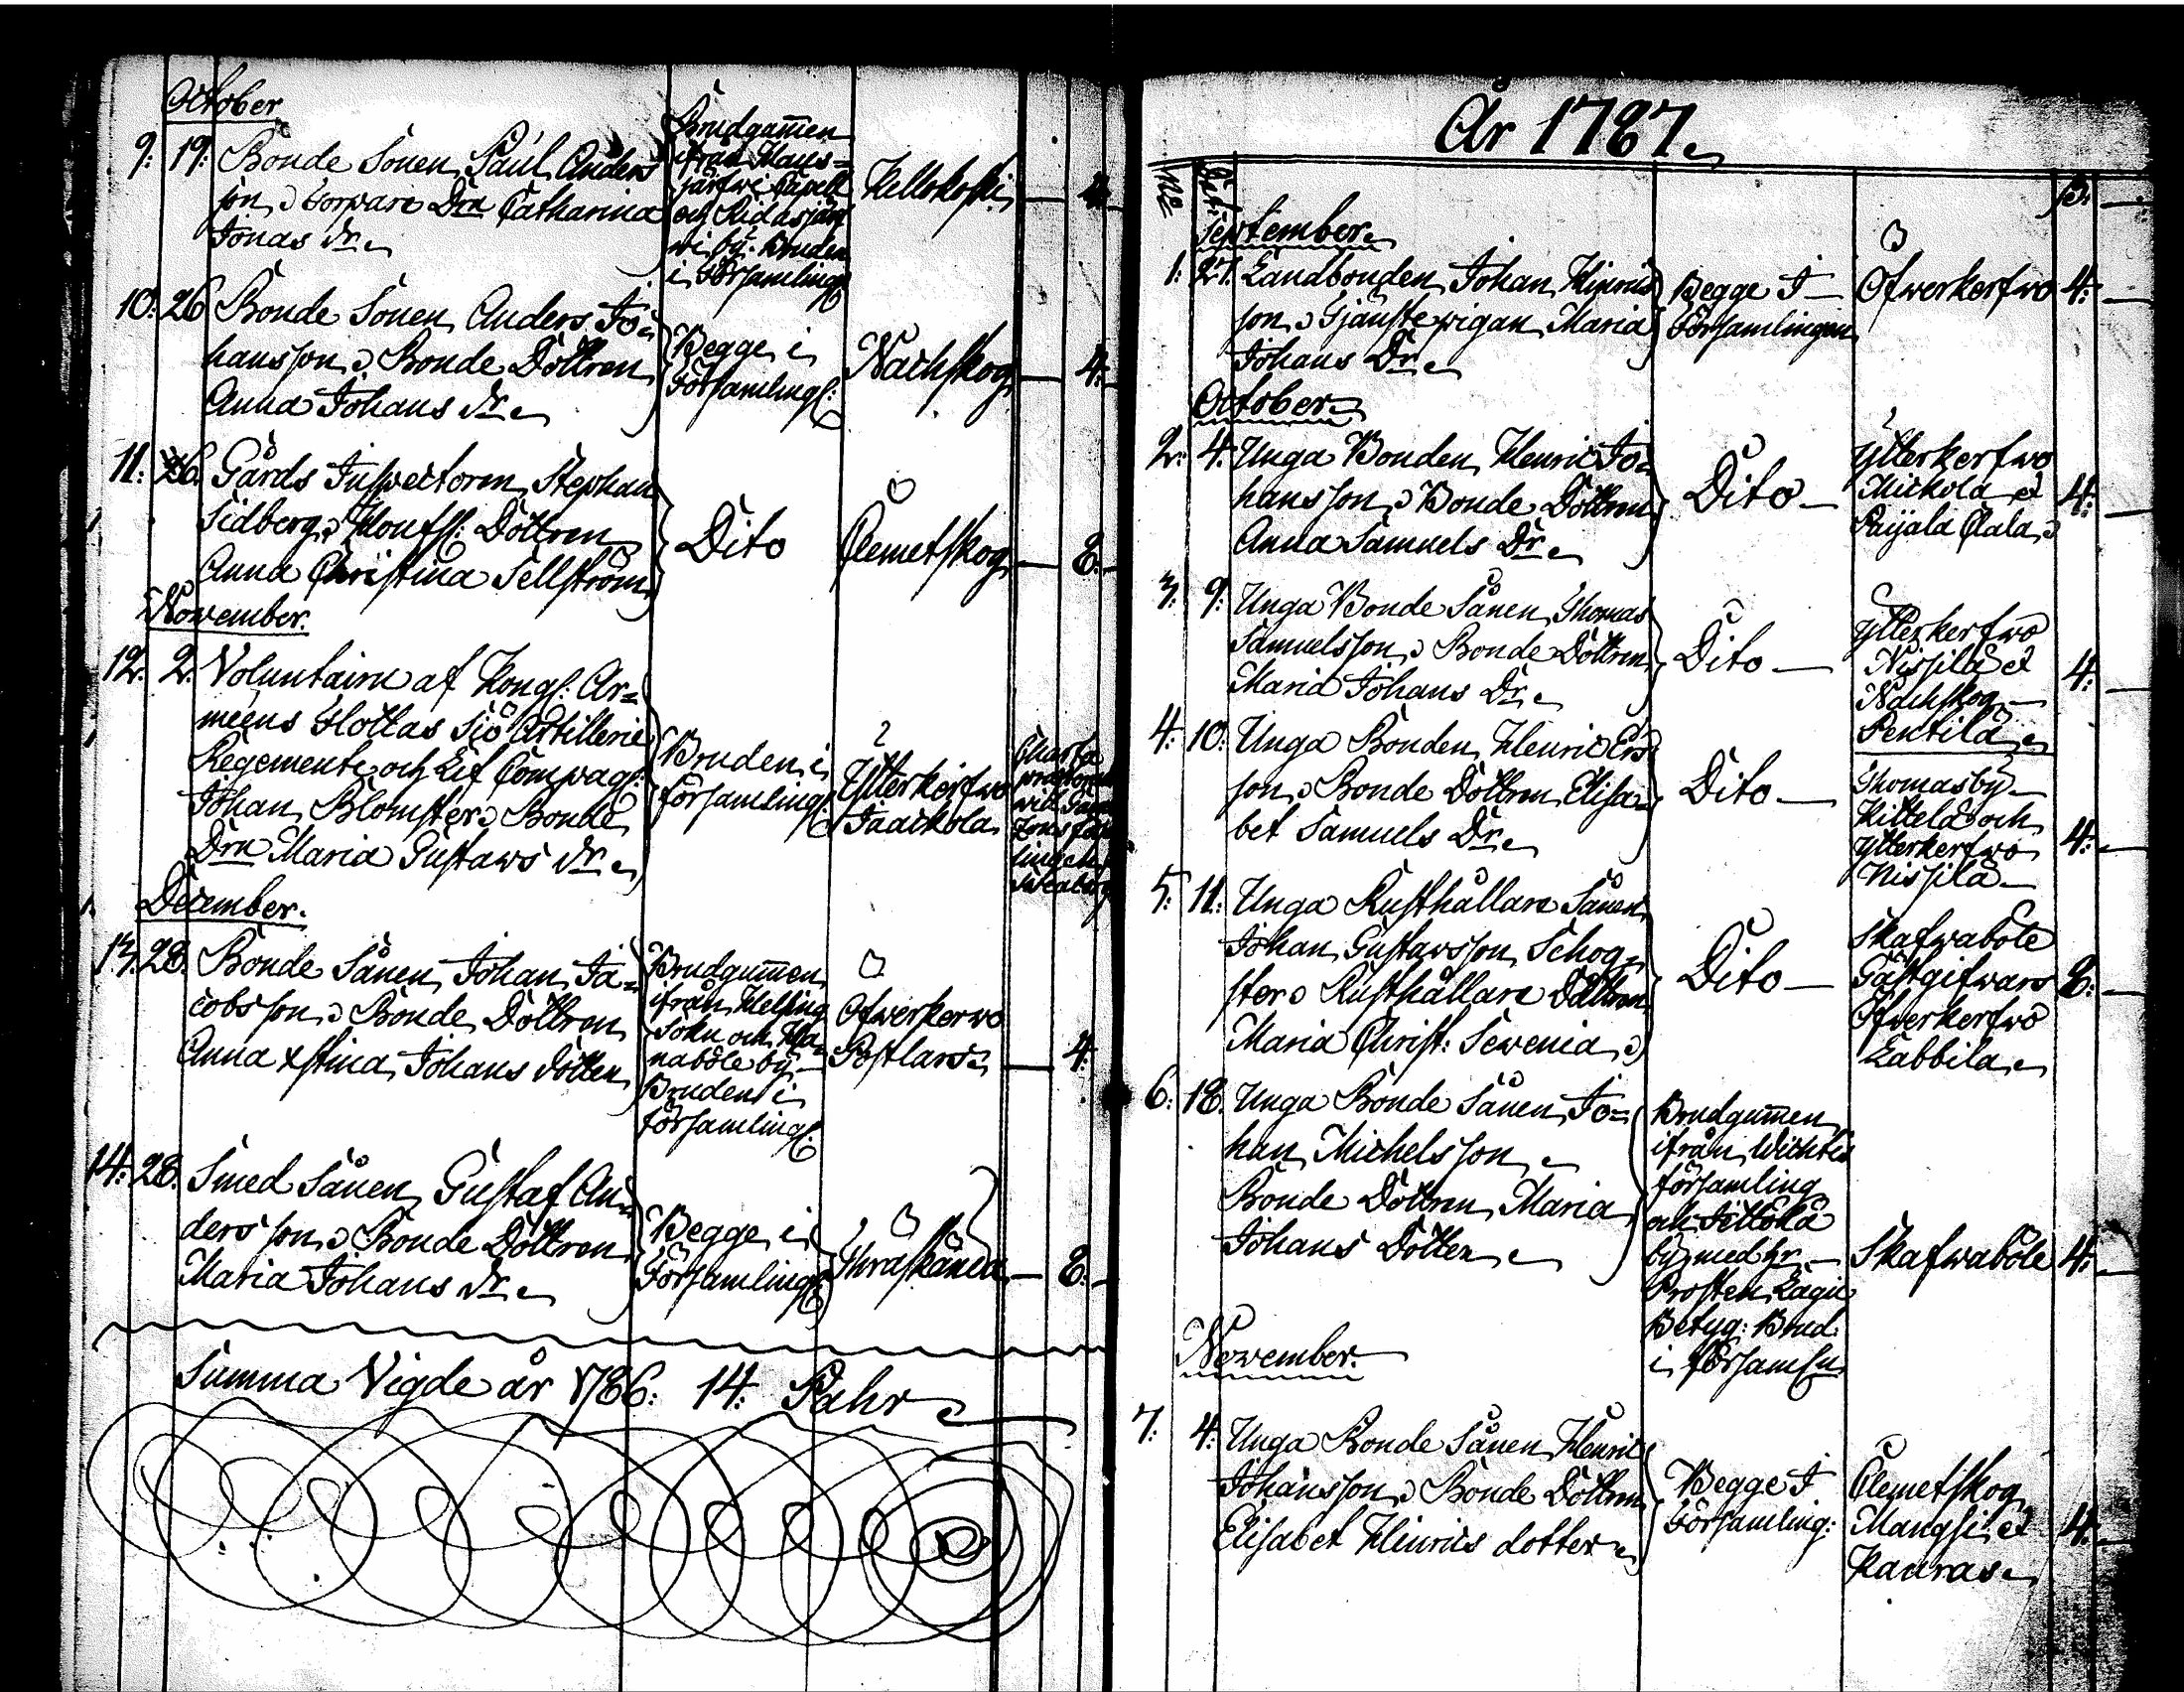 October
9: 19: Bonde Sonen Paul Anders
son, Torpare Drn Catharina
Jonas dr.
Brudgumen
ifrån Haus=
järfwi Capell
och Ridasjär
wi by. Bruden
i Församlingn
Kellokoski — 4.
10: 26 Bonde Sonen Anders Jo=
hansson, Bonde Dottren
Anna Johans dr.
Begge i
Församlingn:
Nachskog — 4:
11: 26. Gårds Inspectoren Stephan
Sidberg, Dottren
Anna Christina Sellström
Dito
Clemetskog — 8.
November.
12. 2. Volontairn af Kongl: Ar=
méens Flottas Siö Artillerie
Regemente och Lif Compagn:
Johan Blomster, Bonde
Drn Maria Gustaws dr.
Bruden i
församlingn
Ytterkerfwo
Jaackola
December.
13. 28. Bonde Sånen Johan Ja=
cobsson, Bonde Dottren
Anna Xstina Johans dotter
Brudgumen
ifrån Helsing
Sokn och Ha=
naböle by —
Bruden i
församlingn:
Ofwerkerwo
Postlars — 4.
14: 28. Smed Sånen Gustaf An=
dersson, Bonde Dottren
Maria Johans dr.
Begge i
Församlingn
Thräskända — 8.
Summa Vigde år 1786: 14: Pahr
År 1787.
No Dat:
September.
1: 27. Landbonden Johan Hinrics
son, Tjänstepigan Maria
Johans Dr.
Begge I —
Församlingen
Öfwerkerfwo 4: —
October.
2: 4: Unga Bonden Henric Jo=
hansson, Bonde Dottren
Anna Samuels Dr.
Dito —
Ytterkerfwo
Mickola et
Paijala Clala
4: —
3: 9: Unga Bonde Sånen Thomas
Samuelsson, Bonde Dottren
Maria Johans Dr.
Dito —
Ytterkerfwo
Nissilä et
Nachskog —
Pentilä
4: —
4: 10: Unga Bonden Henric Ers
son, Bonde Dottren Elisa=
bet Samuels Dr.
Dito —
Thomasby —
Kittelä och
Ytterkerfwo
Nissilä —
4: —
5: 11: Unga Rusthållare Sånen
Johan Gustawsson Schog=
ster, Rusthållare Dottren
Maria Christ: Sewenia
Dito —
Skafwaböle
Gästgifwars
Öfwerkerfwo
Labbila
8: —
6: 18. Unga Bonde Sånen Jo=
han Michelsson
Bonde Dottren Maria
Johans Dotter
Brudgumen
ifrån Wichtis
församling
och
by med hr. —
Prosten Lagii
Betyg: Brud:
i församln
Skafwaböle 4: —
November.
7: 4: Unga Bonde Sånen Henric
Johansson, Bonde Dottren
Elisabet Hinrics dotter
Begge I
Församling:
Clemetskog
Mangsi et
Kauras
4: —